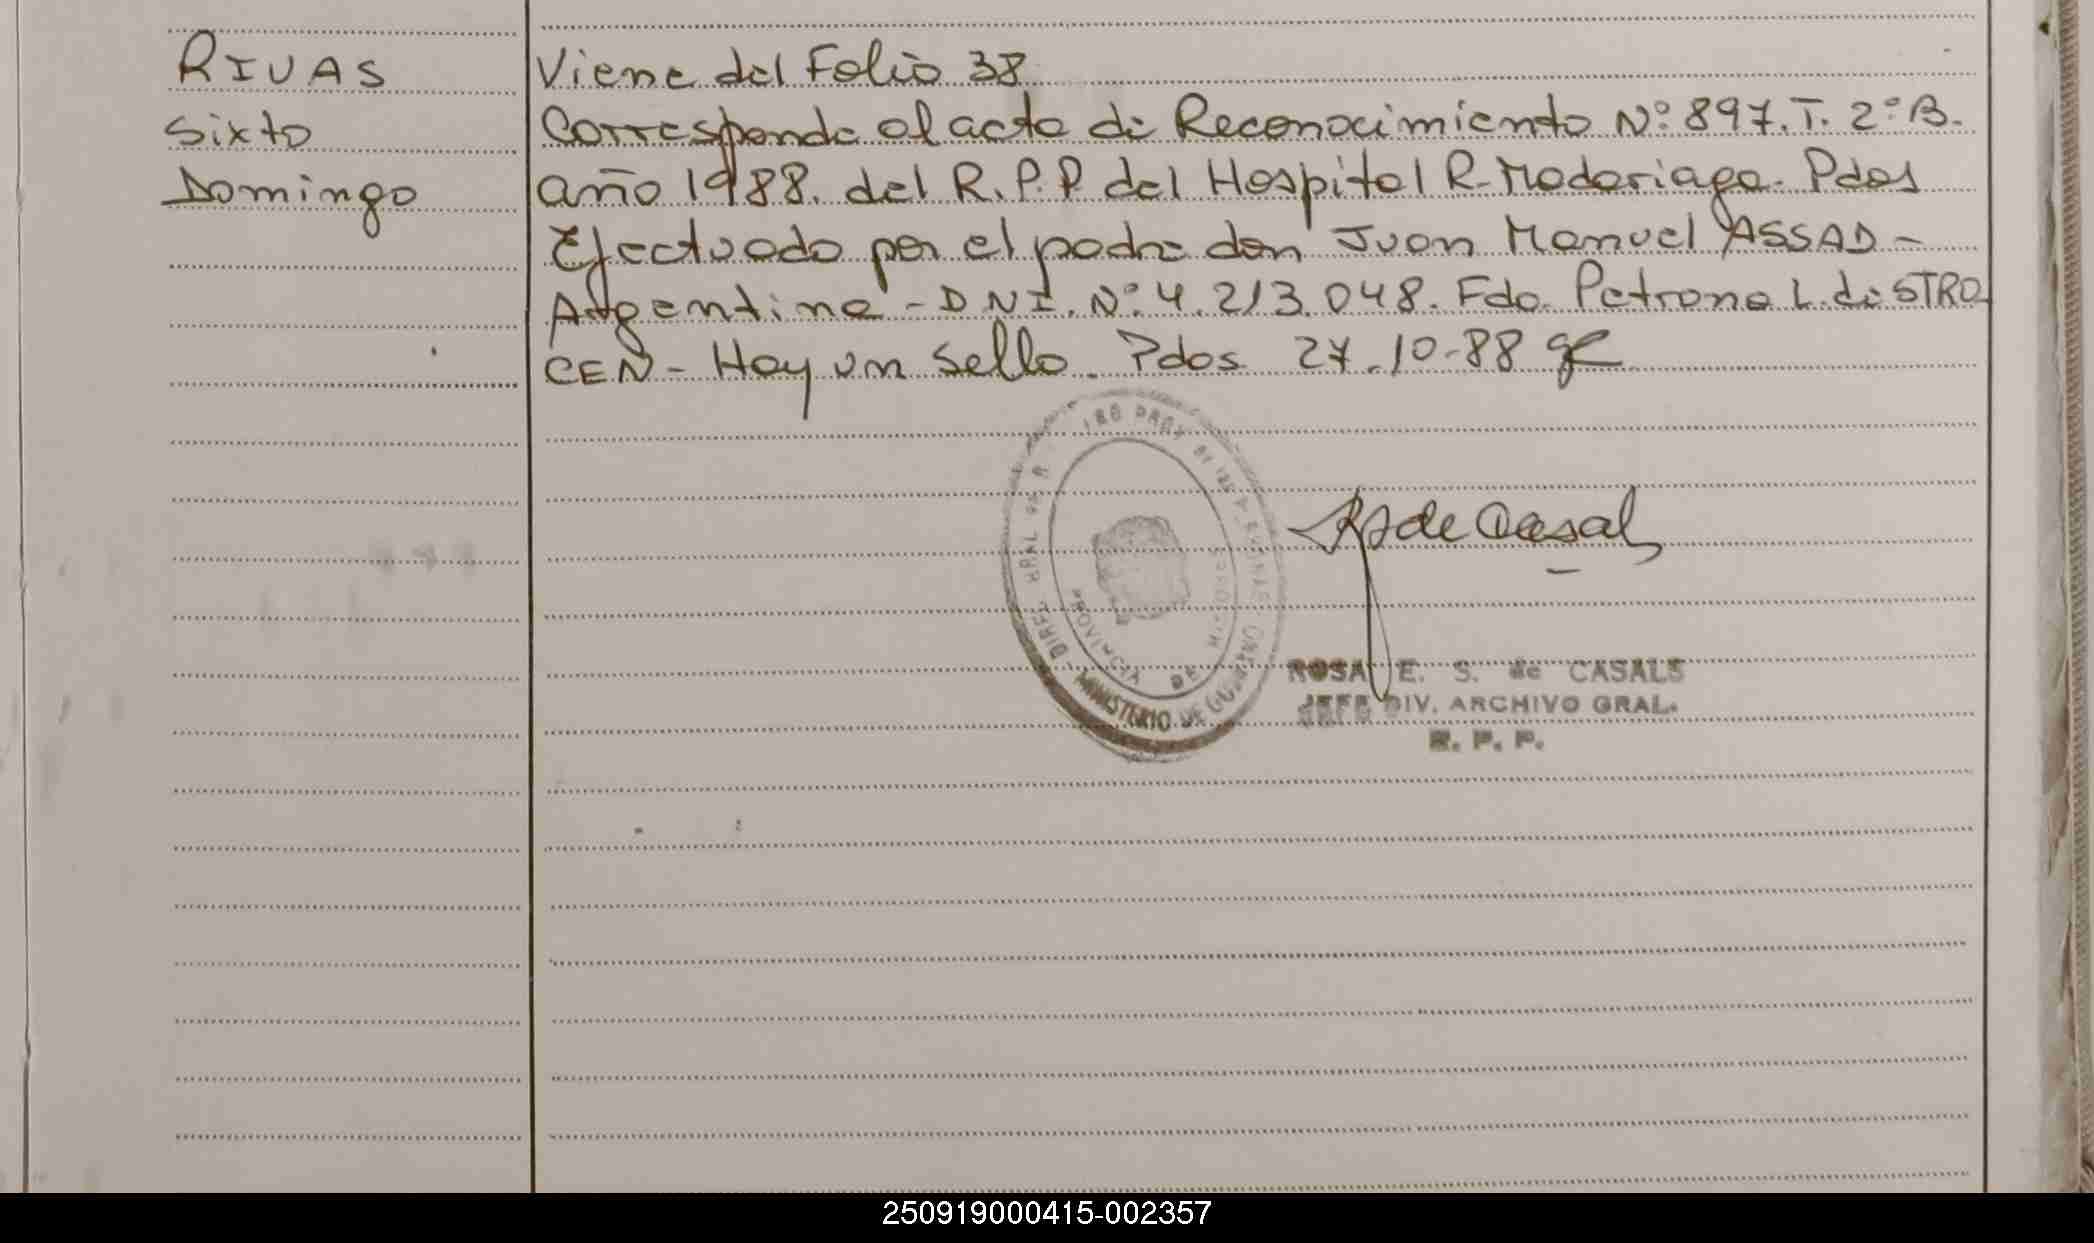 RIVAS
Sixto
Domingo
Viene del Folio 38
Corresponde al acta de Reconocimiento Nº 897. T. 2º B.
año 1988. del R.P.P. del Hospital R. Madariaga. Pdas
Efectuado por el padre don Juan Manuel ASSAD -
Argentino - DNI. Nº 4.213.048. Fdo. Petrona L. de STRO
CEN - Hay un sello. Pdas 27.10-88
DIREC. GRAL
MINISTERIO DE GOBIERNO
PROVINCIA DE MISIONES
ROSA E. S. de CASALS
JEFE DIV. ARCHIVO GRAL.
R. P. P.
250919000415-002357